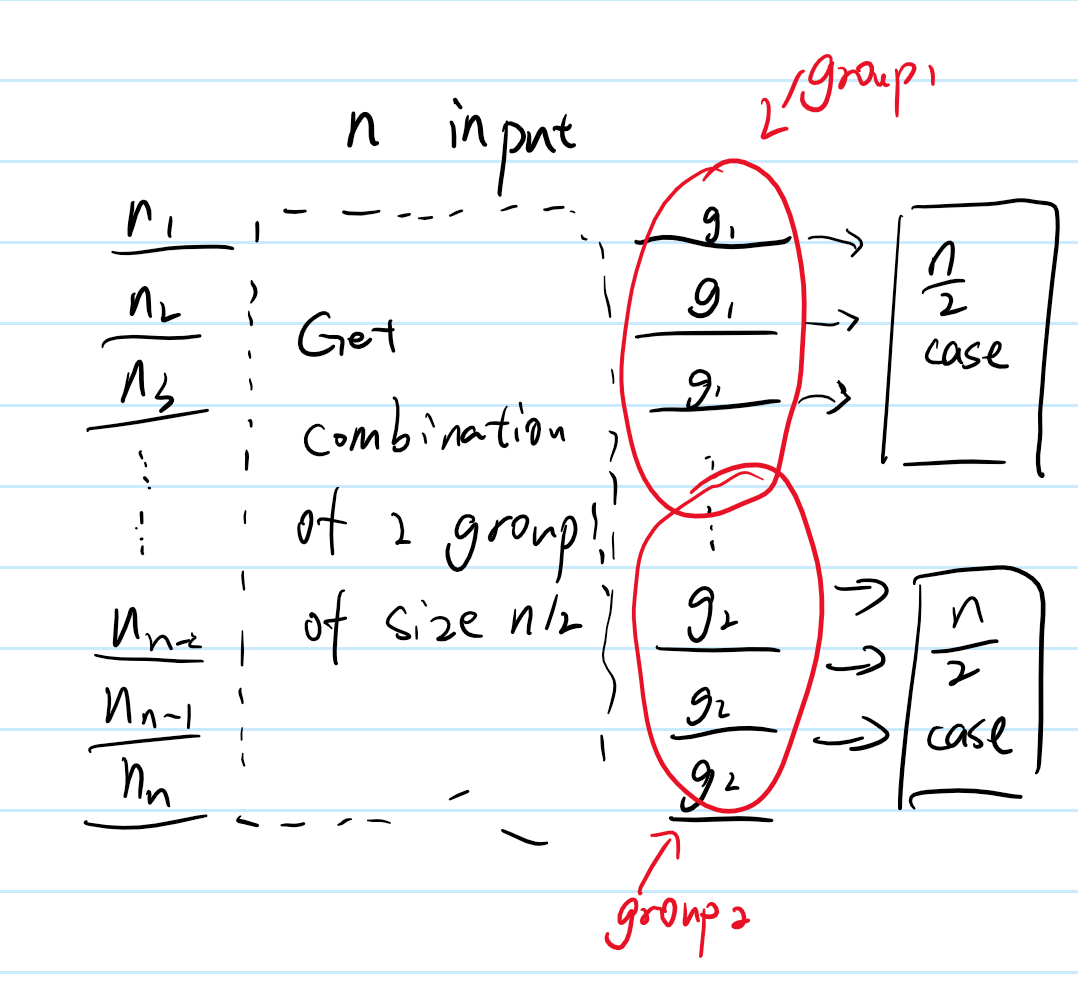 group1
n input
n1
n2
n3
nn-2
nn-1
nn
Get
combination
of 2 group
of size n/2
g1
g1
g1
g2
g2
g2
n/2
case
n/2
case
group2